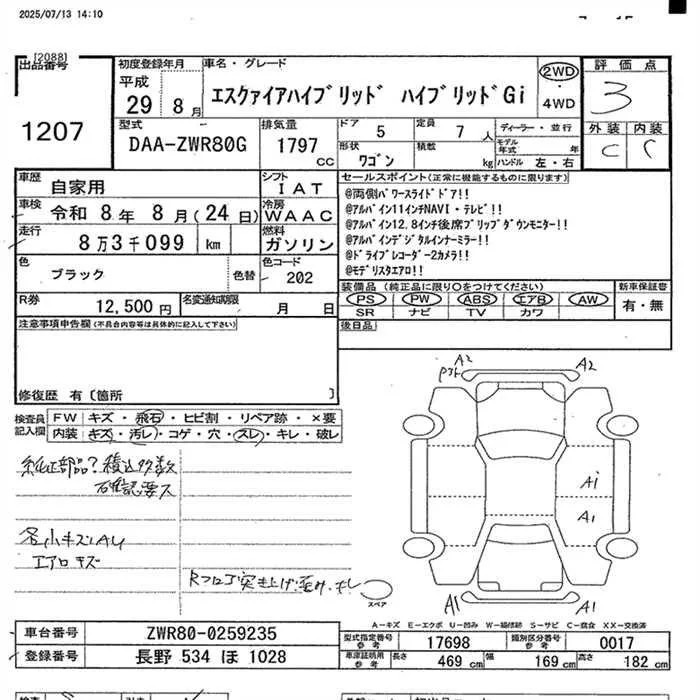 2025/07/13 14:10
[2088]
出品番号
1207
初度登録年月
平成
29 8月
車名・グレード
エスクァイアハイブリッド ハイブリッドGi
2WD
・
4WD
評価点
3
外装 内装
C C
型式
DAA-ZWR80G
排気量
1797
CC
ドア 5
定員 7 人
形状
ワゴン
積載
kg
ディーラー・並行
モデル年式 年
ハンドル 左・右
車歴
自家用
シフト
IAT
車検 令和 8年 8月(24日)
冷房
WAAC
走行
8万3千099 km
燃料
ガソリン
色
ブラック
色替
色コード
202
R券
12,500円
名変通知期限
月 日
セールスポイント(正常に機能するものに限ります)
@両側パワースライドドア!!
@アルパイン11インチNAVI・テレビ!!
@アルパイン12.8インチ後席フリップダウンモニター!!
@アルパインデジタルインナーミラー!!
@ドライブレコーダー2カメラ!!
@モデリスタエアロ!!
装備品(純正品に限り○をつけてください)
PS PW ABS エアB AW
SR ナビ TV カワ
新車保証書
有・無
後日品
注意事項申告欄(不具合内容等は具体的に記入して下さい)
修復歴 有〔箇所 〕
検査員記入欄
FW キズ・飛石・ヒビ割・リペア跡・×要
内装 キズ・汚レ・コゲ・穴・スレ・キレ・破レ
純正部品?積込多数
確認要ス
各小キズAU
エアロキズ
Rフロア突き上げ歪み・キレ
A2
A2
A1
A1
A1
A1
スペア
A-キズ E-エクボ U-凹み W-補修跡 S-サビ C-腐食 XX-交換済
車台番号 ZWR80-0259235
登録番号 長野 534 ほ 1028
型式指定番号 参考 17698 類別区分番号 参考 0017
車庫証明用 参考 長さ 469 cm 幅 169 cm 高さ 182 cm